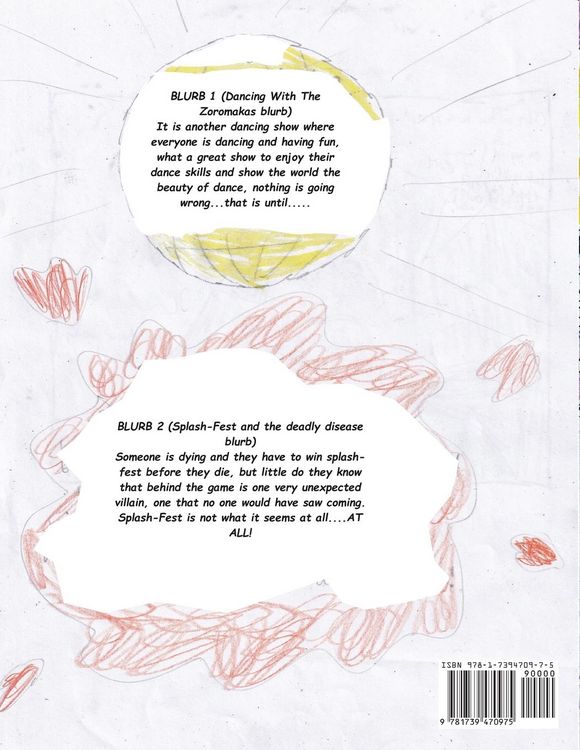 BLURB 1 (Dancing With The
Zoromakas blurb)
It is another dancing show where
everyone is dancing and having fun,
what a great show to enjoy their
dance skills and show the world the
beauty of dance, nothing is going
wrong...that is until.....
BLURB 2 (Splash-Fest and the deadly disease
blurb)
Someone is dying and they have to win splash-
fest before they die, but little do they know
that behind the game is one very unexpected
villain, one that no one would have saw coming.
Splash-Fest is not what it seems at all....AT
ALL!
ISBN 978-1-7394709-7-5
90000
9 781739 470975